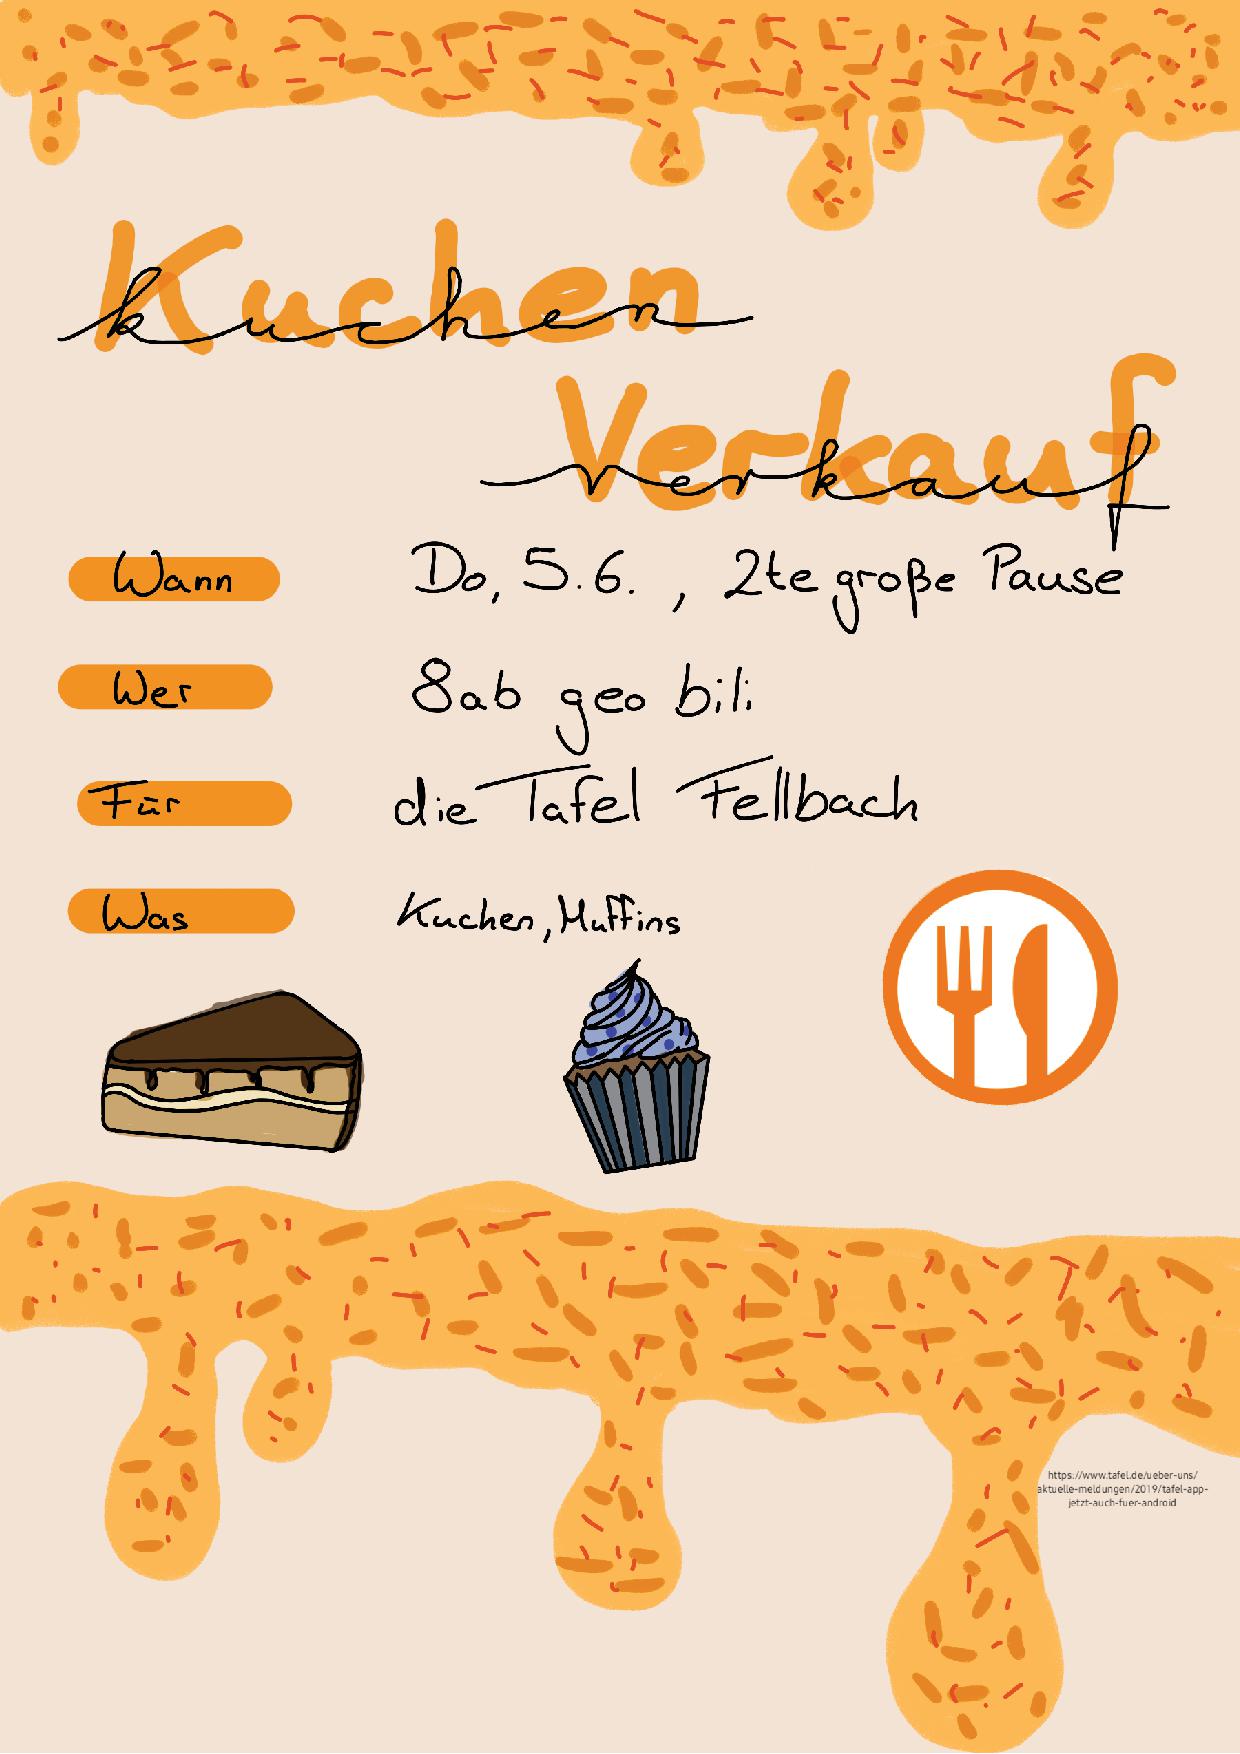 Kuchen
kuchen
Verkauf
verkauf
Wann Do, 5.6. , 2te große Pause
Wer 8ab geo bili
Für die Tafel Fellbach
Was Kuchen, Muffins
https://www.tafel.de/ueber-uns/
aktuelle-meldungen/2019/tafel-app-
jetzt-auch-fuer-android